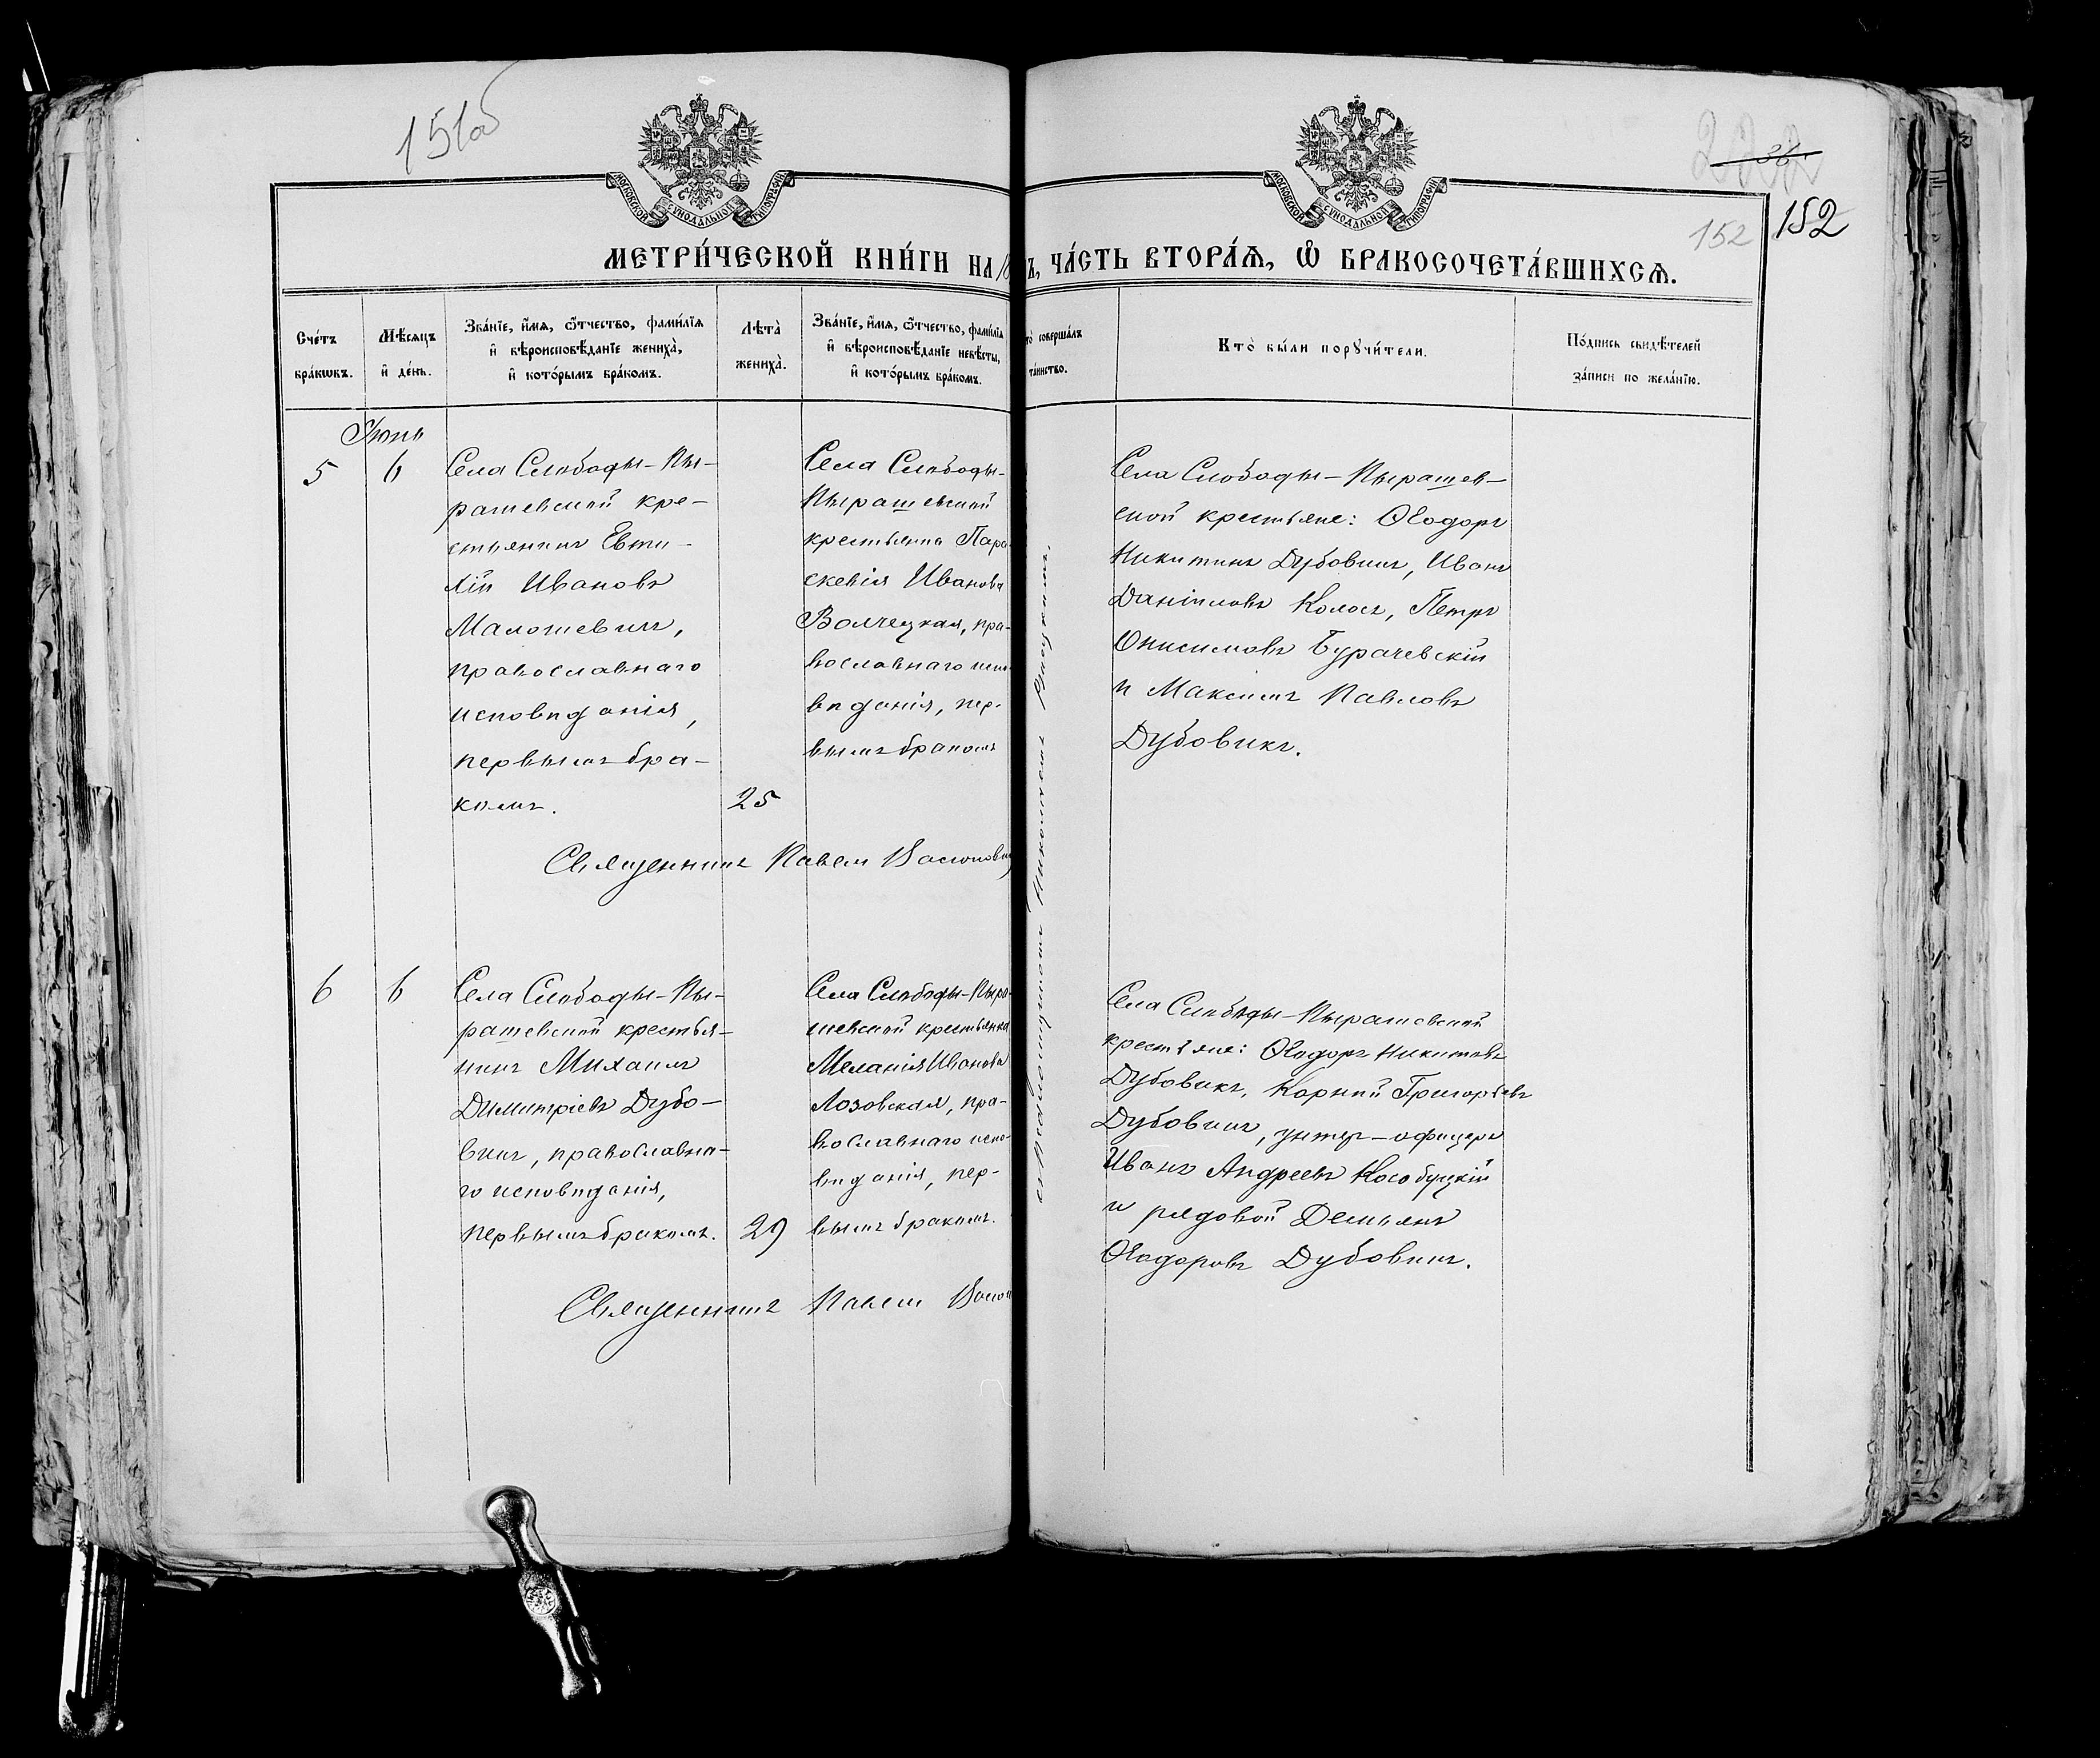 151об
152
152
МОСКОВСКОЙ СУНОДАЛЬНОЙ ТИПОГРАФИИ
МОСКОВСКОЙ СУНОДАЛЬНОЙ ТИПОГРАФИИ
МЕТРИ́ЧЕСКОЙ КНИ́ГИ НА
ЧА́СТЬ ВТОРА́Ѧ, Ѡ҆ БРАКОСОЧЕТА́ВШИХСѦ.
Сче́тъ
бра́кѡвъ.
Мѣ́сяцъ
и҆ де́нь.
Зва́нїе, и҆́мѧ, ѻ҆́тчество, фами́лїѧ
и҆ вѣроисповѣ́данїе жениха̀,
и҆ кото́рымъ бра́комъ.
Лѣта̀
жениха̀.
Зва́нїе, и҆́мѧ, ѻ҆́тчество, фами́лїѧ
и҆ вѣроисповѣ́данїе невѣ́сты,
и҆ кото́рымъ бра́комъ.
соверша́лъ
та́инство.
Кто̀ бы́ли порꙋчи́тели.
По́дпись свидѣ́телей
за́писи по жела́нїю.
Іюнь
5
6
Села Слободы-Пы-
рашевской кре-
стьянинъ Евти-
хій Ивановъ
православнаго
исповѣданія,
первымъ бра-
комъ.
25
Села Слободы-
Пырашевской
крестьянка Пара
скевія Иванова
пра-
вославнаго испо
вѣданія, пер-
вымъ бракомъ
Священникъ Павелъ
Села Слободы-Пырашев-
ской крестьяне: Ѳеодоръ
Никитинъ Дубовикъ, Иванъ
Даніиловъ Колосъ, Петръ
Онисимовъ Бурачевскій
и Максимъ Павловъ
Дубовикъ.
6
6
Села Слободы-Пы-
рашевской крестья-
нинъ Михаилъ
Димитріевъ Дубо-
викъ, православна-
го исповѣданія,
первымъ бракомъ.
29
Села Слободы-Пыра-
шевской крестьянка
Меланія Иванова
Лозовская, пра-
вославнаго испо-
вѣданія, пер-
вымъ бракомъ.
Священникъ Павелъ
Села Слободы-Пырашевской
крестьяне: Ѳеодоръ Никитинъ
Дубовикъ, Корній Григорьевъ
Дубовикъ, унтер-офицеръ
Иванъ Андреевъ Кособуцкій
и рядовой Демьянъ
Ѳеодоровъ Дубовикъ.
съ псаломщикомъ Николаемъ